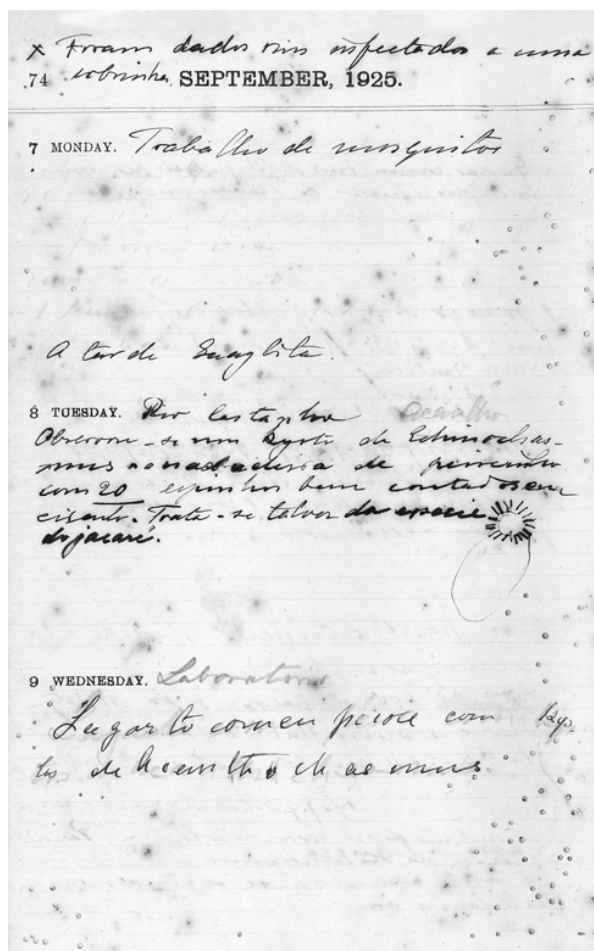 x Foram dados rins infectados a uma
74 cobrinha. SEPTEMBER, 1925.
7 MONDAY. Trabalho de mosquitos
A tarde
8 TUESDAY. Rio
Observou-se um cysto de Echinochas-
mus na nadadeira de peixinho
com 20 espinhos bem contados em
circulo. Trata-se talvez da especie
do jacaré.
9 WEDNESDAY. Laboratorio
Lagarto comeu peixe com kys-
tos de Acanthochasmus